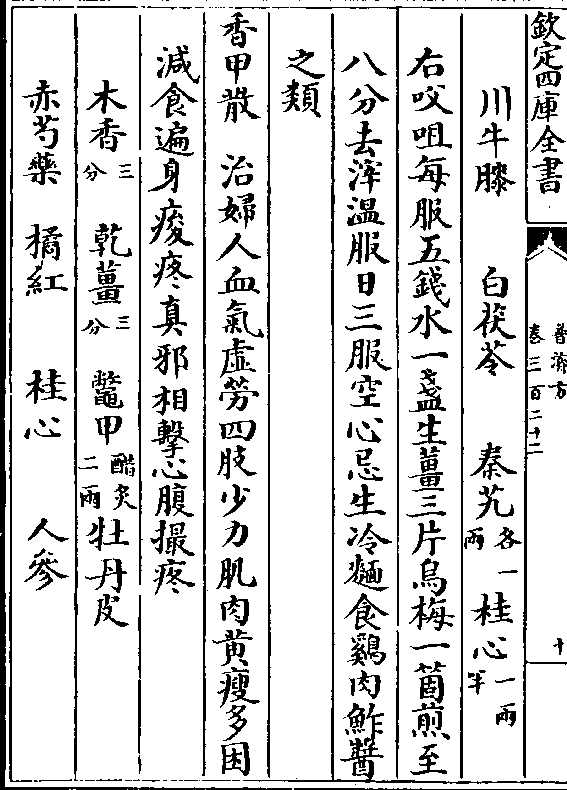 欽定四庫全書
普濟方
卷三百二十二
十
川牛膝 白茯苓 秦艽各一兩 桂心一兩半
右㕮咀每服五錢水一盞生薑三片烏梅一箇煎至
八分去滓温服日三服空心忌生冷麵食雞肉鮓醬
之類
香甲散 治婦人血氣虛勞四肢少力肌肉黄瘦多困
減食遍身痠疼真邪相擊心腹撮疼
木香三分 乾薑三分 鼈甲醋炙二兩 牡丹皮
赤芍藥 橘紅 桂心 人參